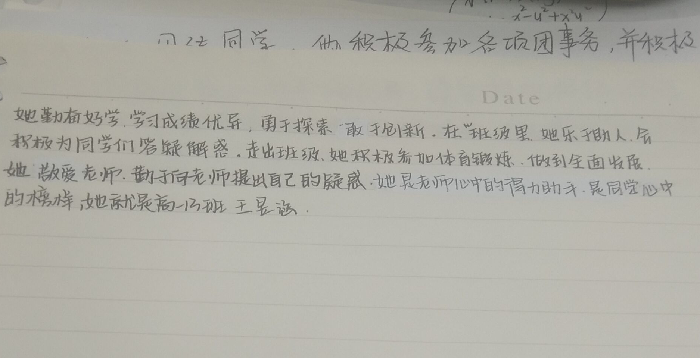 x²-y²+x²y
同学, 他积极参加各项团事务,并积极
Date
她勤奋好学.学习成绩优异,勇于探索 敢于创新.在班级里.她乐于助人.会
积极为同学们答疑解惑.走出班级.她积极参加体育锻炼.做到全面发展.
她敬爱老师.勤于向老师提出自己的疑惑.她是老师心中的得力助手.是同学心中
的榜样,她就是高一13班 王昱涵.